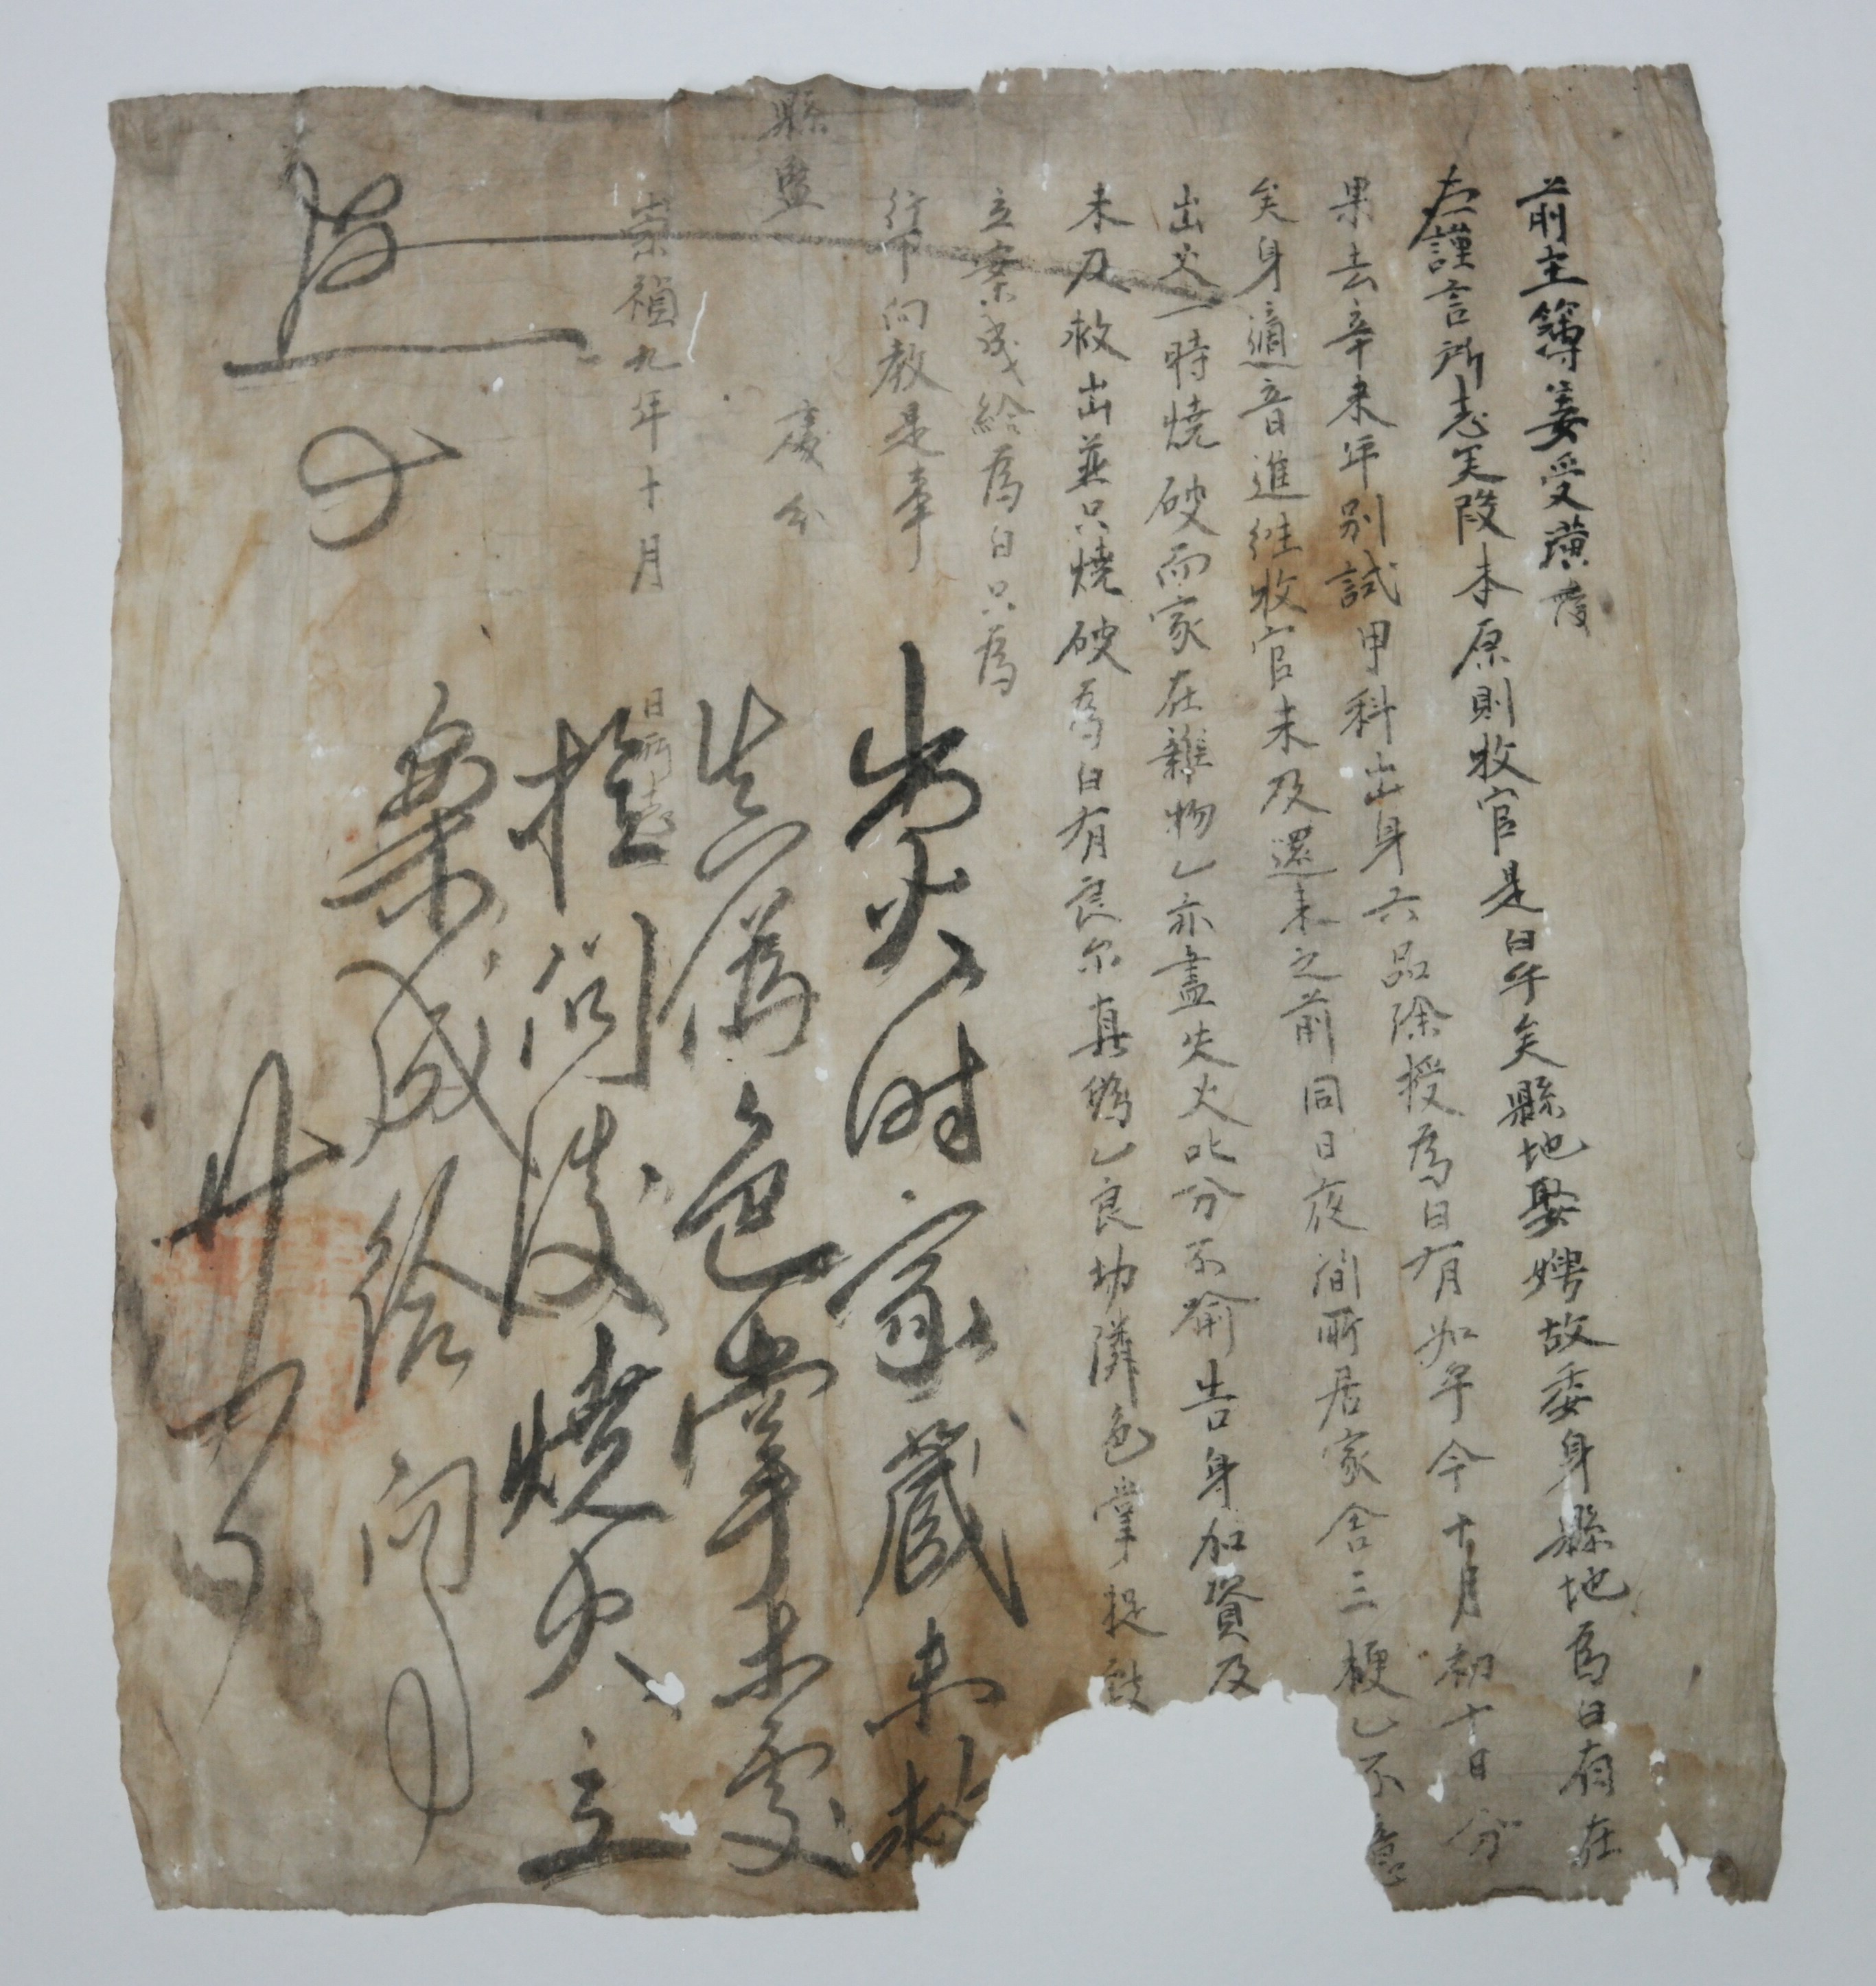 前主簿姜受璜
右謹言所志矣段本原則牧官是白乎矣縣地娶娉故委身縣地爲白有在
果去辛未年別試甲科出身六品除授爲白有如乎今十月初十日分
矣身適音進往牧官未及還來之前同日夜間所居家舍三梗乙不意
出火一時燒破而家在雜物乙亦盡失火叱分不喻告身加資及
未及救出並只燒破爲白有良尔眞僞乙良切隣色掌捉
立案成給爲白只爲
行下向敎是事
縣監 處分
崇禎九年十月 日所志
出火時家藏未救
眞僞色掌未處
推問後燒火立
案成給向事